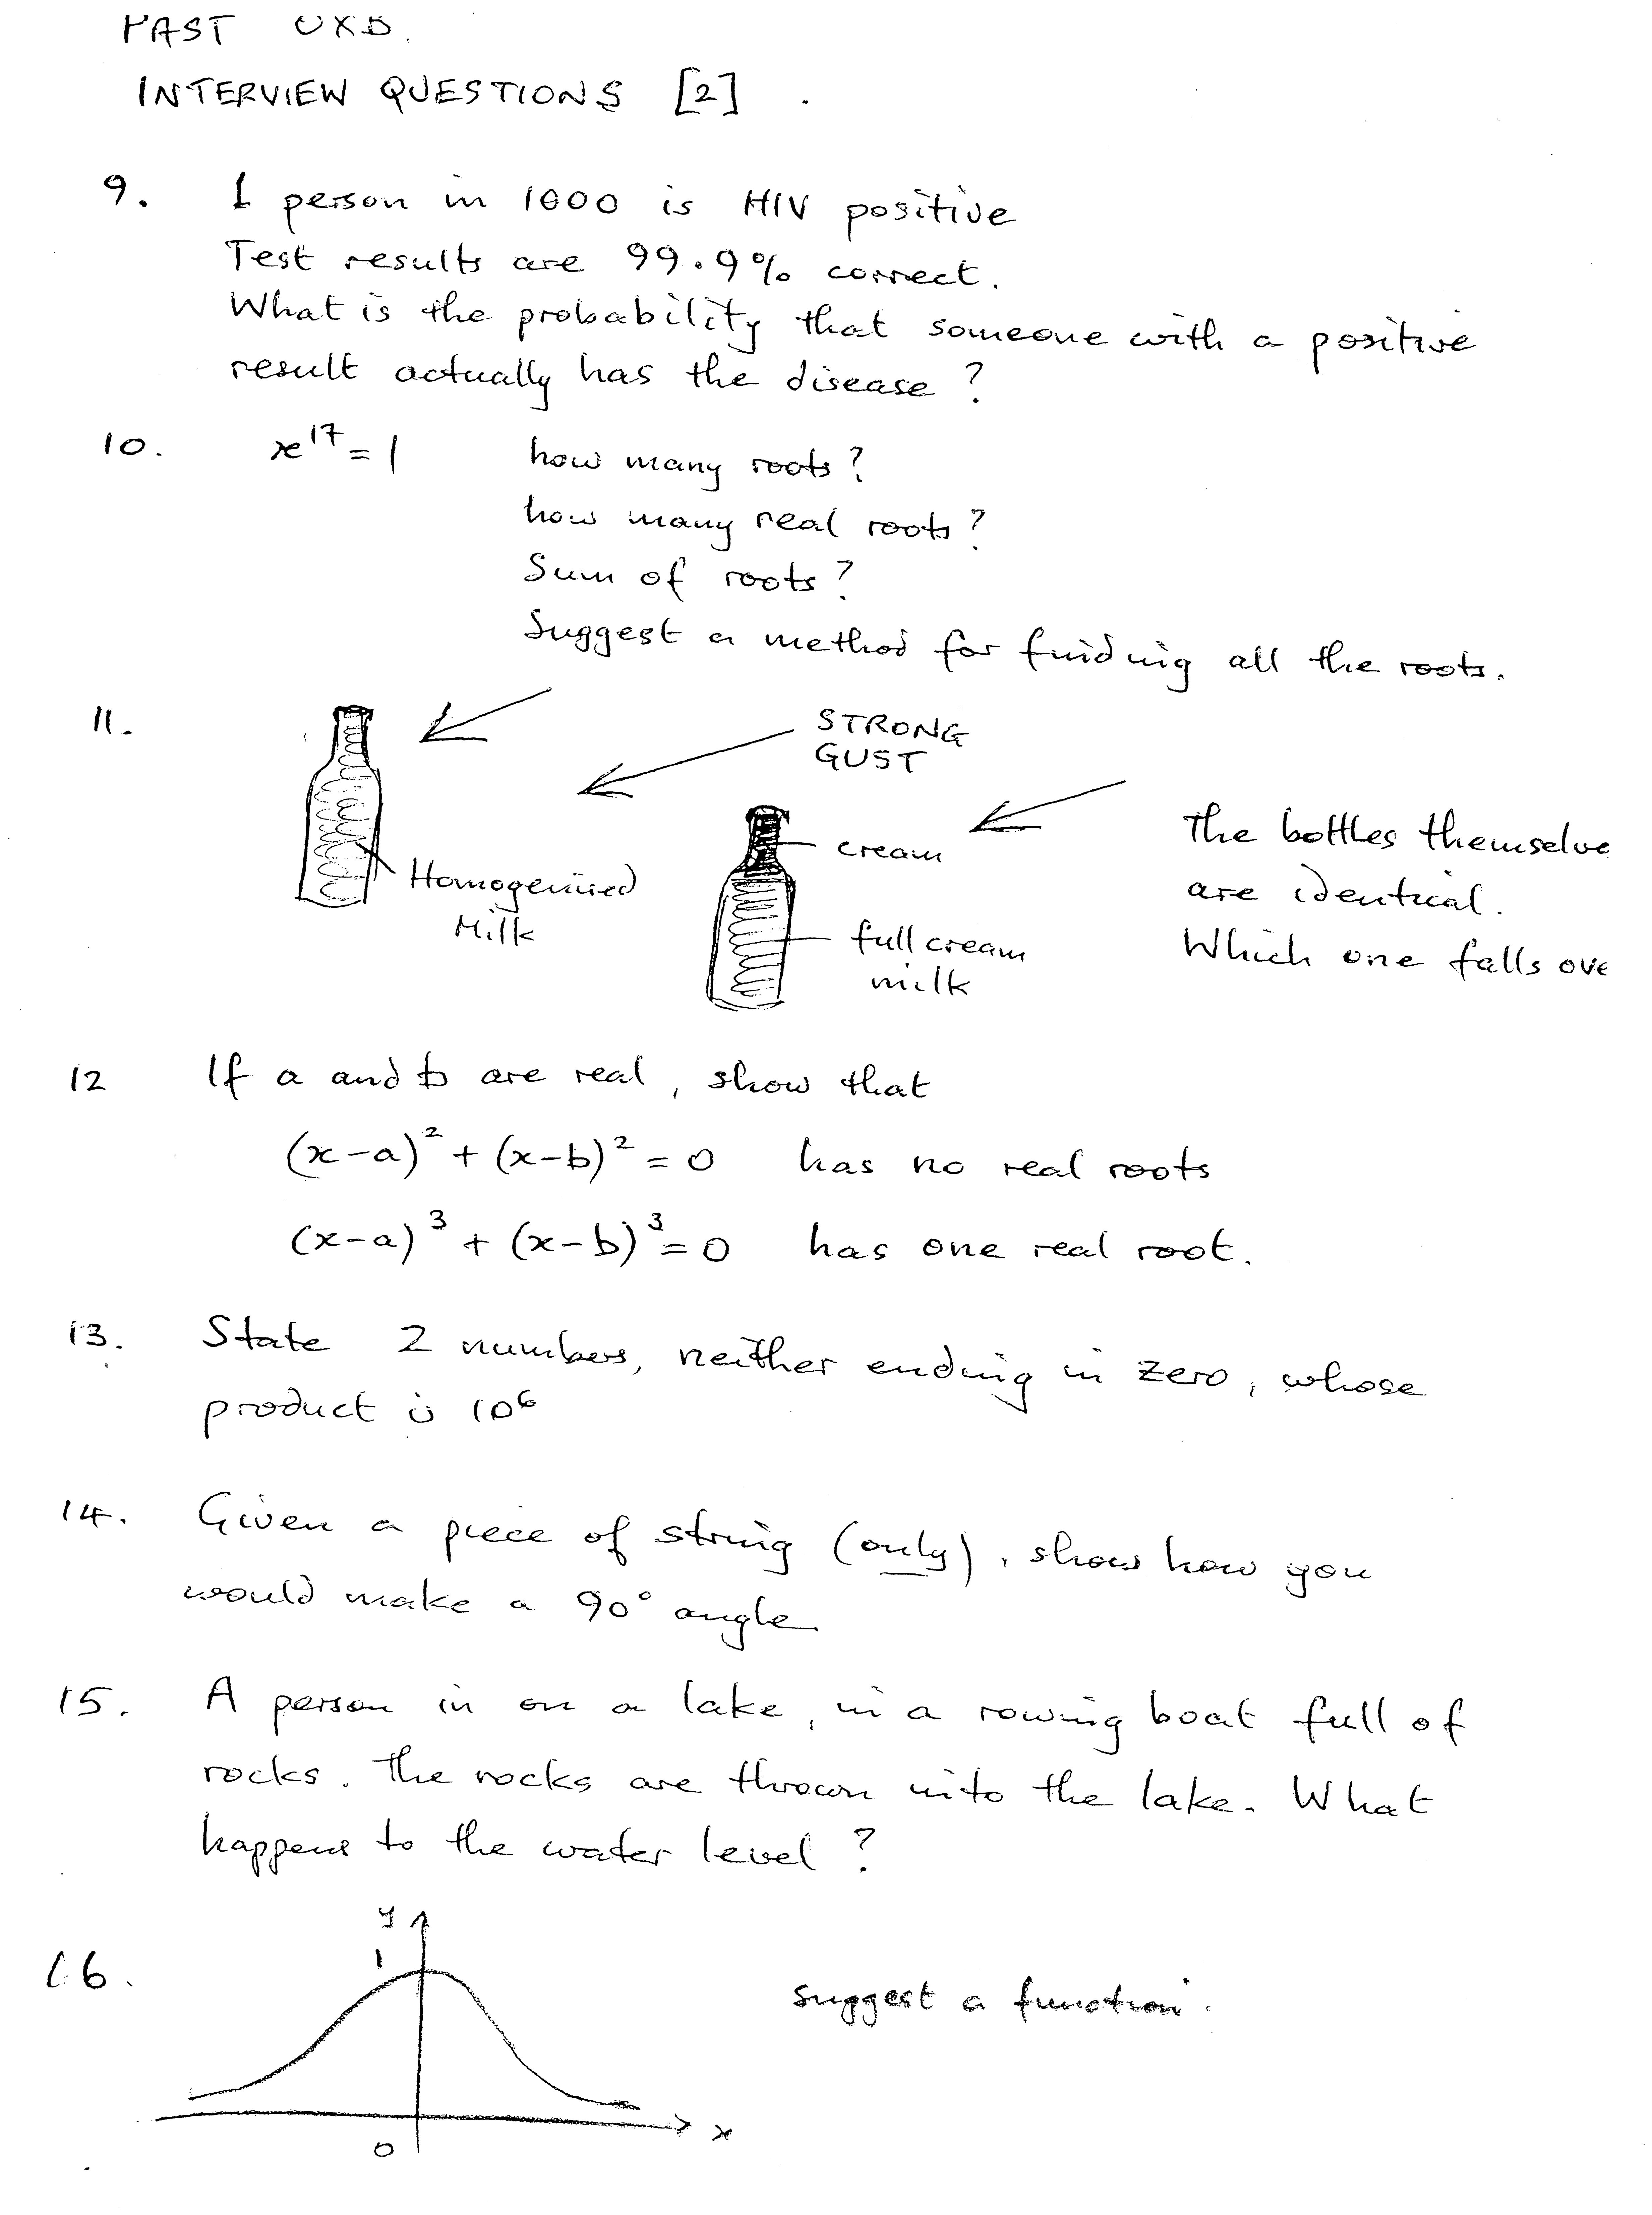 PAST OXD.
INTERVIEW QUESTIONS [2] .
9. 1 person in 1000 is HIV positive
Test results are 99.9% correct.
What is the probability that someone with a positive
result actually has the disease ?
10. x¹⁷ = 1 how many roots ?
how many real roots ?
Sum of roots ?
Suggest a method for finding all the roots.
11. STRONG
GUST
Homogenised
Milk
cream
full cream
milk
The bottles themselve
are identical.
Which one falls ove
12 If a and b are real, show that
(x-a)² + (x-b)² = 0 has no real roots
(x-a)³ + (x-b)³ = 0 has one real root.
13. State 2 numbers, neither ending in zero, whose
product is 10⁶
14. Given a piece of string (only), show how you
would make a 90° angle.
15. A person in on a lake, in a rowing boat full of
rocks. The rocks are thrown into the lake. What
happens to the water level ?
16. y
1
0
x
suggest a function.